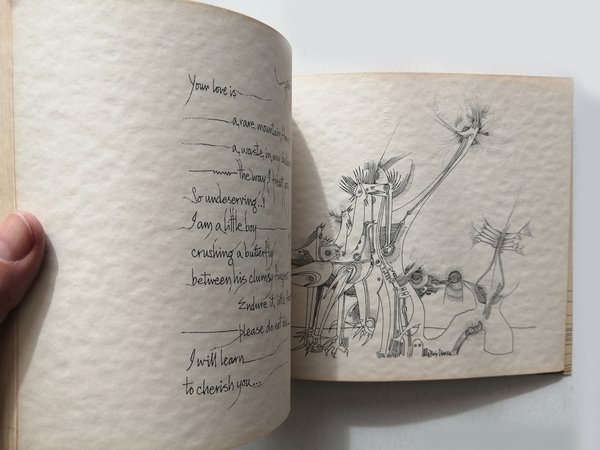 Your love is
a rare, mountain
a waste, in my
the way I treat you
So undeserving..!
I am a little boy
crushing a butterfly
between his clumsy fingers
Endure it, little
Please do not die
I will learn
to cherish you...